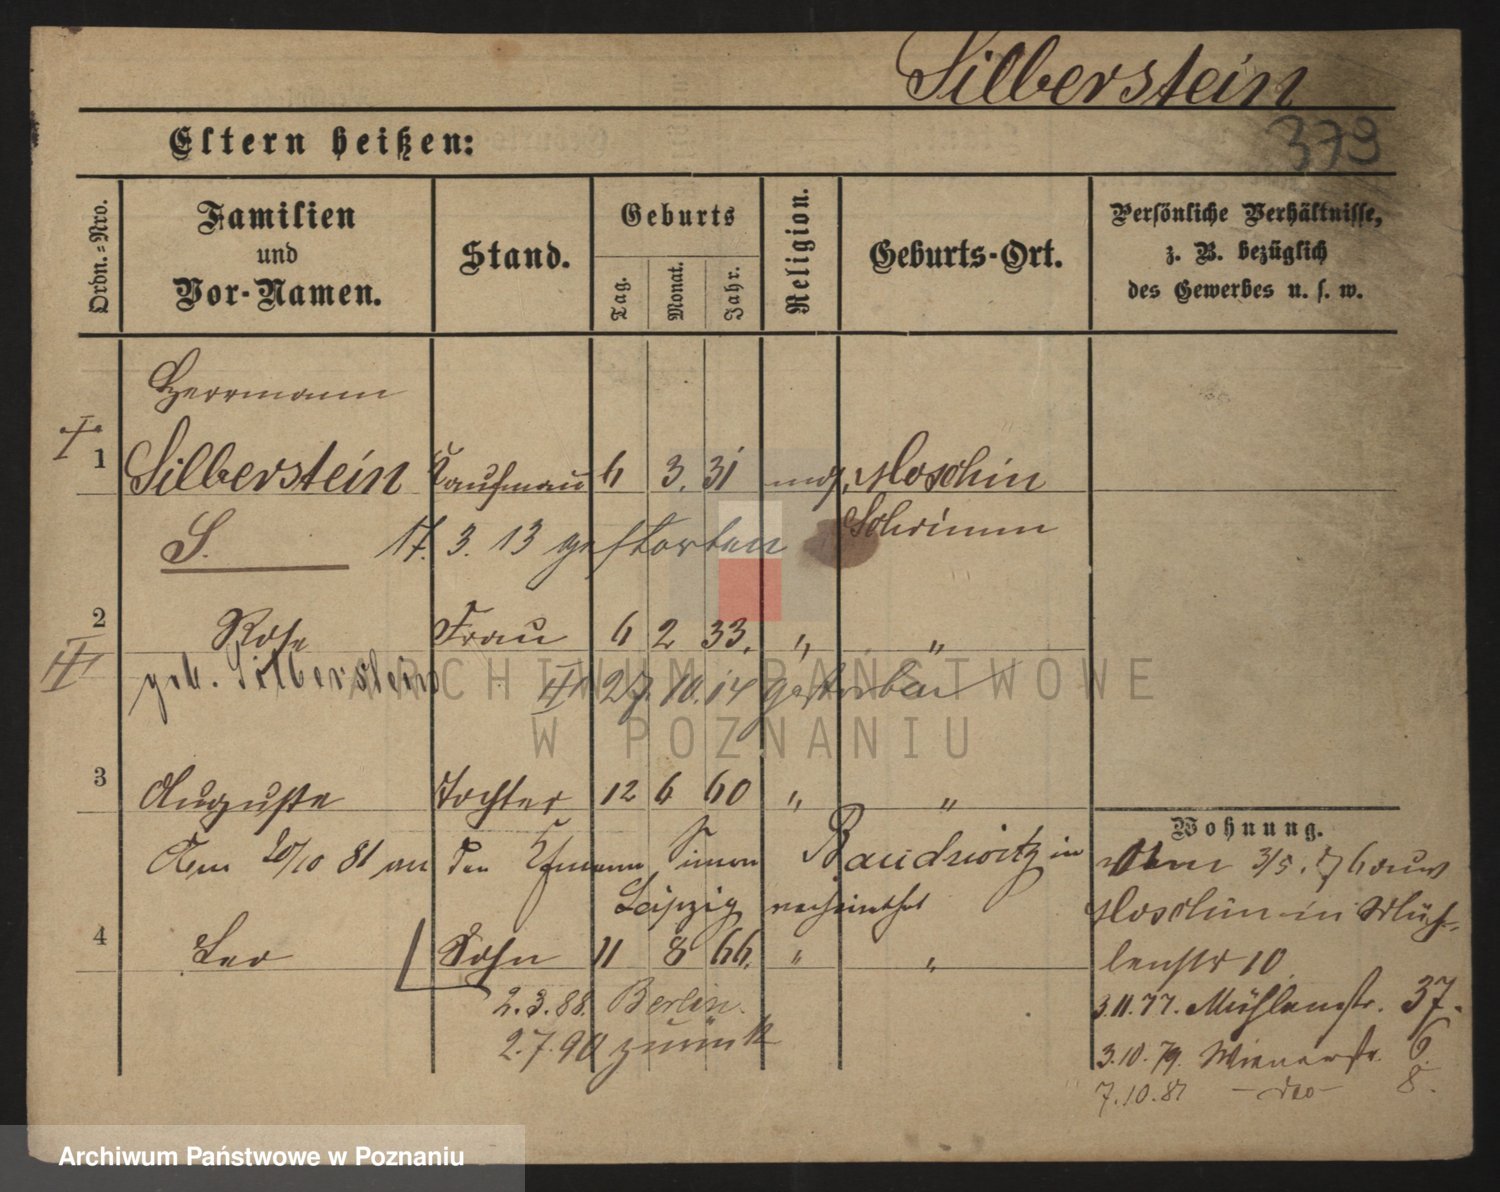 Silberstein
379
Eltern heißen:
Ordn.-Nro.
Familien
und
Vor-Namen.
Stand.
Geburts
Tag.
Monat.
Jahr.
Religion.
Geburts-Ort.
Persönliche Verhältnisse,
z. B. bezüglich
des Gewerbes u. s. w.
Herrmann
I
1 Silberstein Kaufmann 6 3. 31 mos. Moschin
S. Schrimm
17. 3. 13 gestorben
2 Rosa Frau 6 2 33. " "
II geb. Silberstein II 27. 10. 14 gestorben
3 Auguste Tochter 12 6 60 " "
Am 20/10 81 an den Kfmann Simon Baudwitz in
Leipzig verheirathet
4 Leo Sohn 11 8 66. " "
2. 3. 88. Berlin.
2. 7. 90 zurück
Wohnung.
Am 3/5. 76 aus
Moschin in Müh-
lenstr 10
3. 11. 77. Mühlenstr. 37.
3. 10. 79. Wienerstr. 6.
7. 10. 81 - dto - 8.
ARCHIWUM PAŃSTWOWE
W POZNANIU
Archiwum Państwowe w Poznaniu